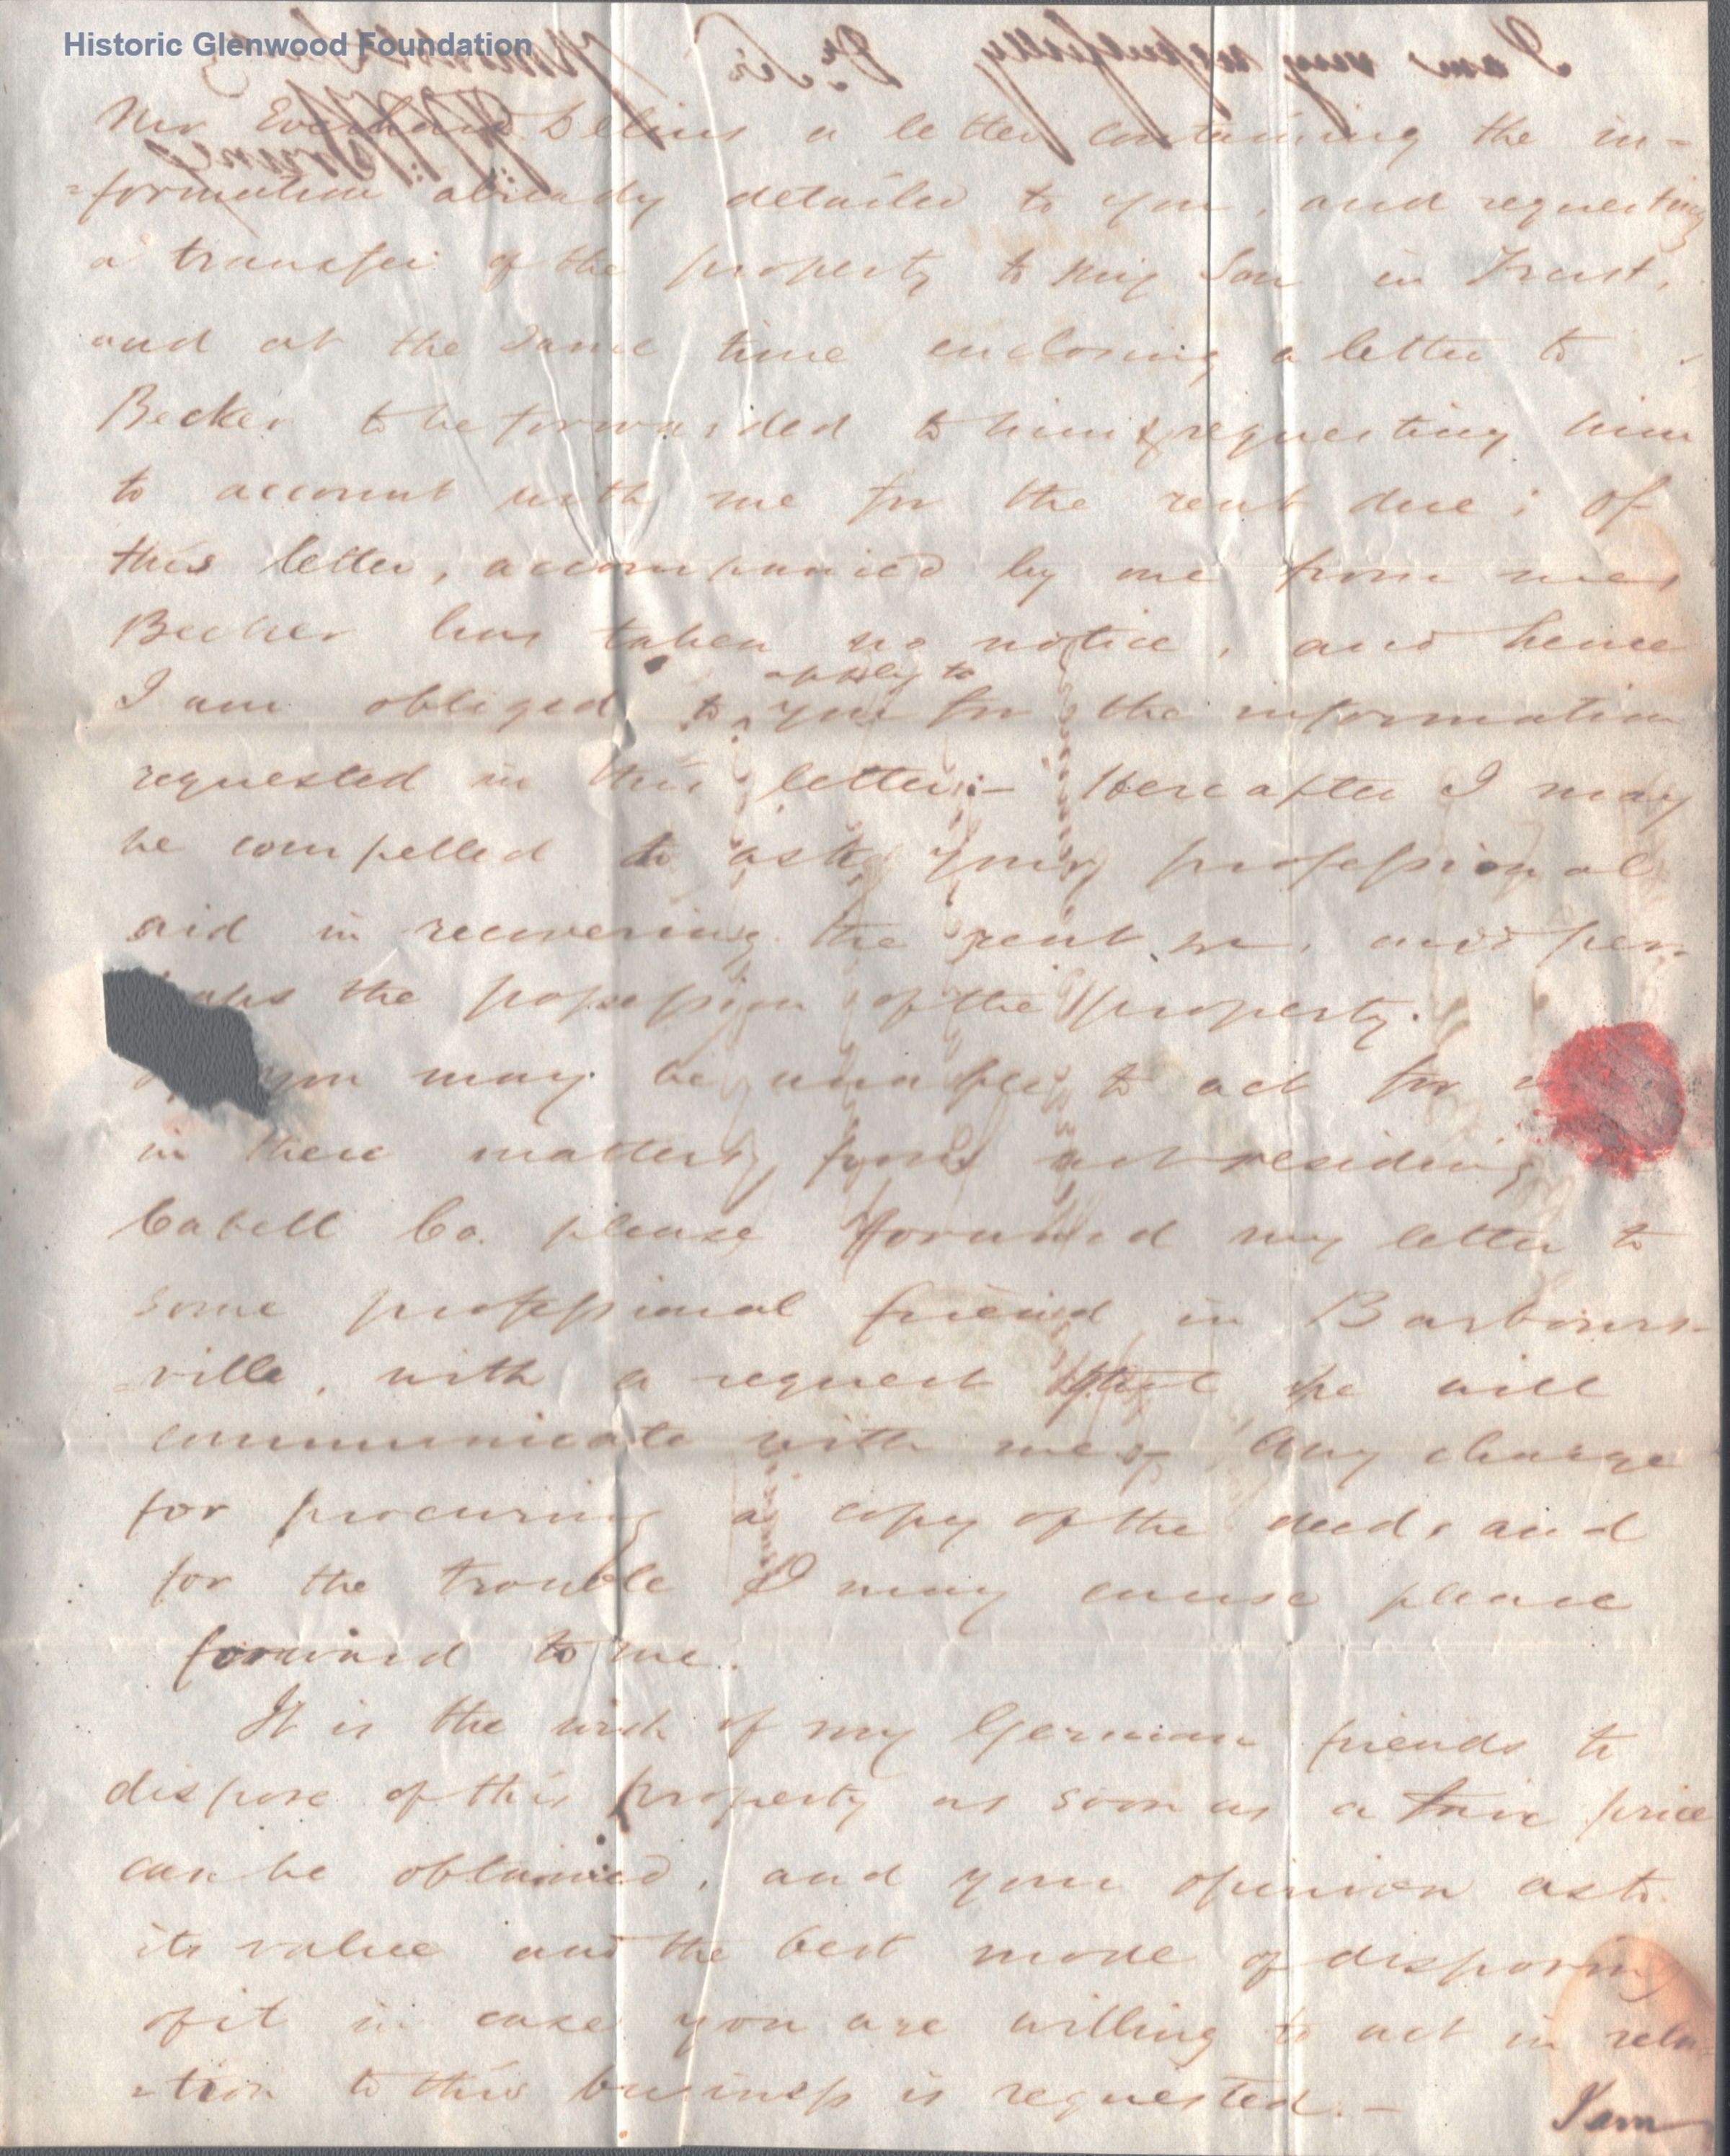 Historic Glenwood Foundation
I am very respectfully Dr Sir
Mr Everhard Delius a letter containing the in=
=formation already detailed to you, and requesting
a transfer of the property to my Son in Trust,
and at the same time enclosing a letter to
Becker to be forwarded to him & requesting him
to account with me for the rent due; of
this letter, accompanied by one from me
Becker has taken no notice, and hence
apply to
I am obliged to you for the information
requested in this letter:- Hereafter I may
be compelled to ask your professional
aid in recovering the rent, and per-
haps the possession of the property.
you may be unable to act for
in these matters, from not residing
Cabell Co. please forward my letter to
some professional friend in Barbours-
=ville, with a request that he will
communicate with me. Any charge
for procuring a copy of the deed, and
for the trouble I may cause please
forward to me.
It is the wish of my German friends to
dispose of this property as soon as a fair price
can be obtained, and your opinion as to
its value and the best mode of disposing
of it in case you are willing to act in rela=
=tion to this business is requested.-
I am